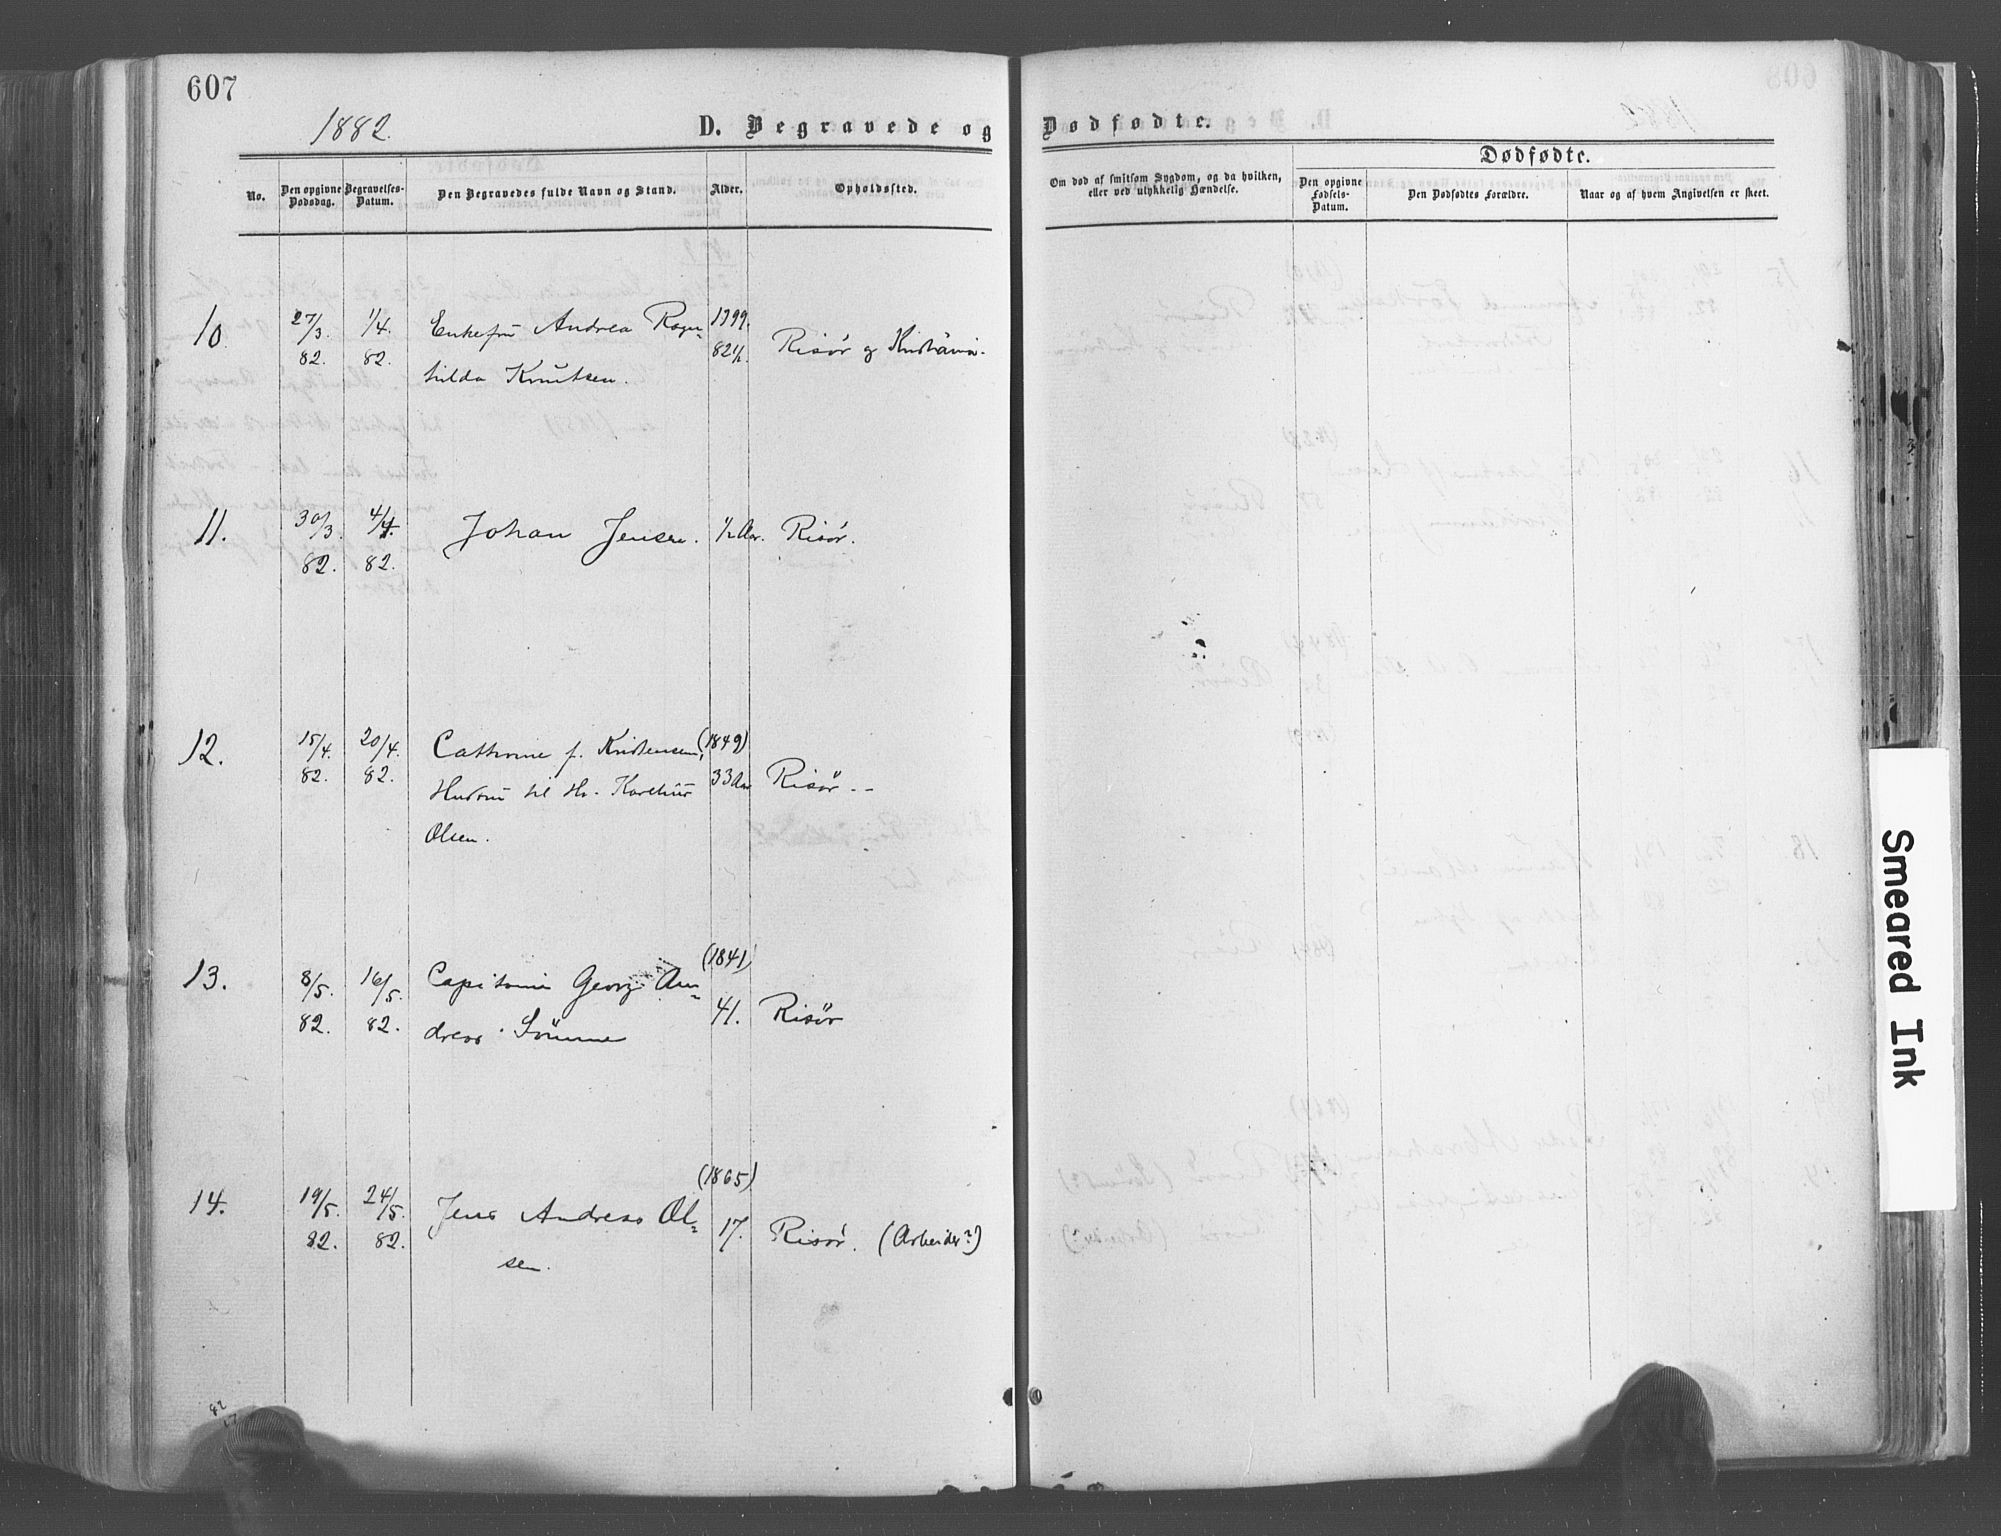 607
1882.
D. Begravede og Dødfødte.
No.
Den opgivne Dødsdag.
Begravelses-Datum.
Den Begravedes fulde Navn og Stand.
Alder.
Opholdssted.
Om død af smitsom Sygdom, og da hvilken, eller ved ulykkelig Hændelse.
Dødfødte.
Den opgivne Fødsels-Datum.
Den Dødfødtes Forældre.
Naar og af hvem Angivelsen er skeet.
10 27/3 1/4. Enkefru Andrea Ragn= 1799.
82. 82. hilda Knutsen. 82½ Risør og Kristiania.
11. 30/3. 4/4. Johan Jensen. ½ Aar. Risør.
82. 82.
12. 15/4. 20/4. Cathrine f. Kristensen, (1849)
82. 82. Hustru til Hr. 33 Aar Risør --
Olsen.
13. 8/5. 16/5. Georg An= (1841)
82. 82. dreas Sömme 41. Risør
14. 19/5. 24/5. Jens Andreas Ol= (1865)
82. 82. sen. 17. Risør. (Arbeider?)
82
17
Smeared Ink